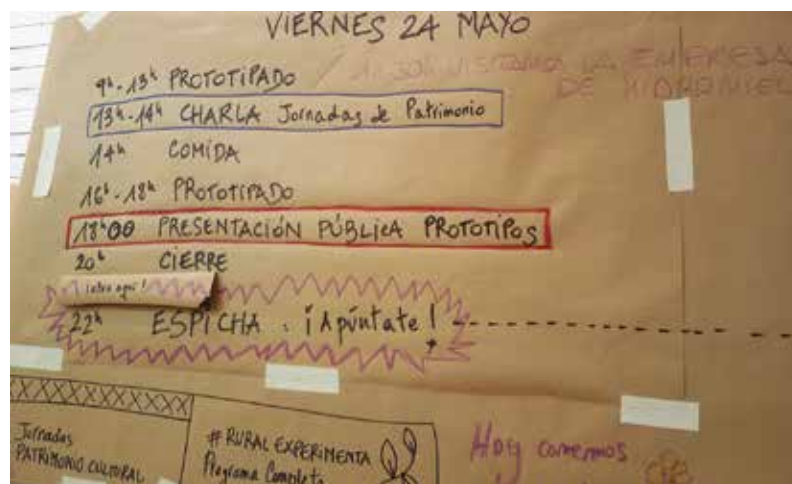 VIERNES 24 MAYO
9h-13h PROTOTIPADO / 11:30h VISITAMOS LA EMPRESA
DE HIDROMIEL
13h-14h CHARLA Jornadas de Patrimonio
14h COMIDA
16h-18h PROTOTIPADO
18h00 PRESENTACIÓN PÚBLICA PROTOTIPOS
20h CIERRE
22h ESPICHA. ¡Apúntate!
Jornadas
PATRIMONIO CULTURAL
# RURAL EXPERIMENTA
Programa Completo
Hoy comemos